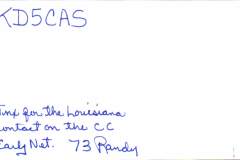 KD5CAS
Tnx for the Louisiana
contact on the CC
Early Net. 73 Randy